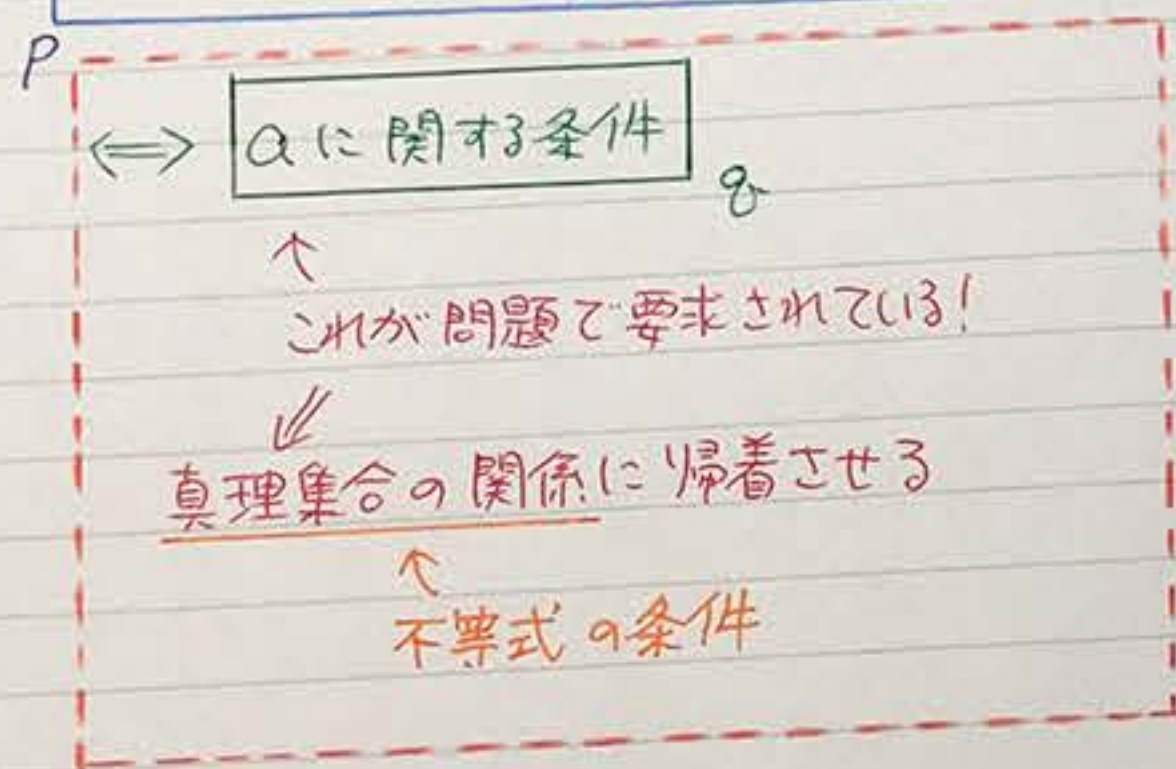 P
⟺ aに関する条件 q
↑
これが問題で要求されている!
⇙
真理集合の関係に帰着させる
↑
不等式の条件